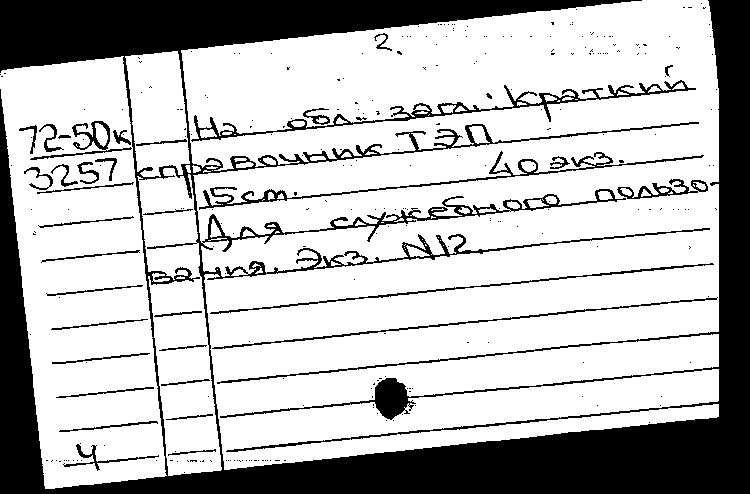 2.
72-50к На обл.: загл.: Краткий
3257 справочник ТЭП
15 ст. 40 экз.
Для служебного пользо-
вания. Экз. N12.
4